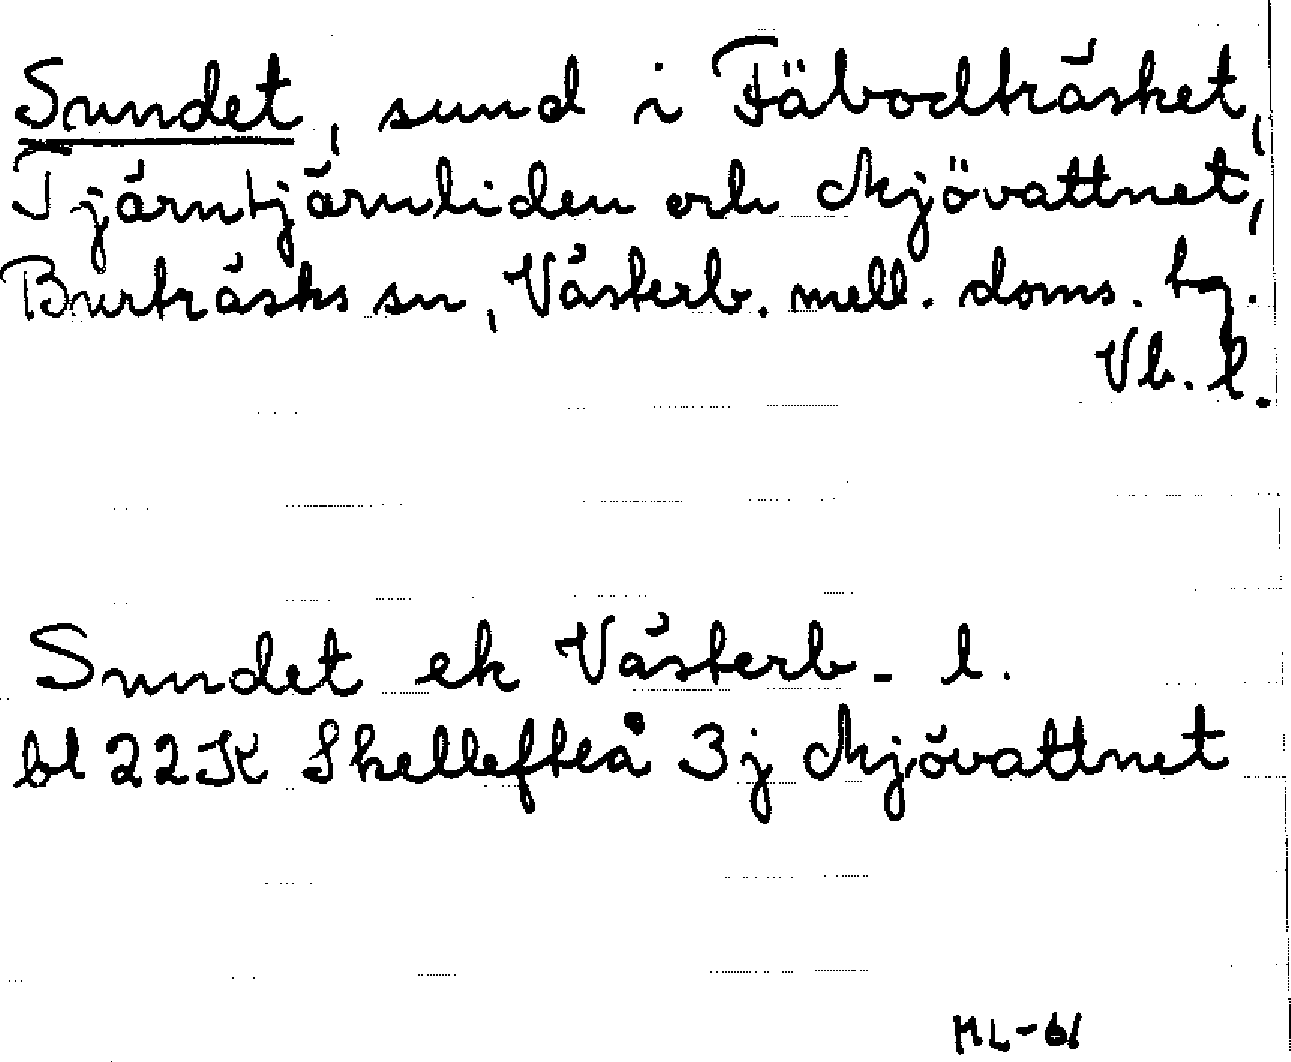 Sundet, sund i Fäbodträsket,
Tjärntjärnliden och Mjövattnet,
Burträsks sn, Västerb. mell. doms. tg.
Vb. l.
Sundet ek Västerb. l.
bl 22K Skellefteå 3j Mjövattnet
ML-61